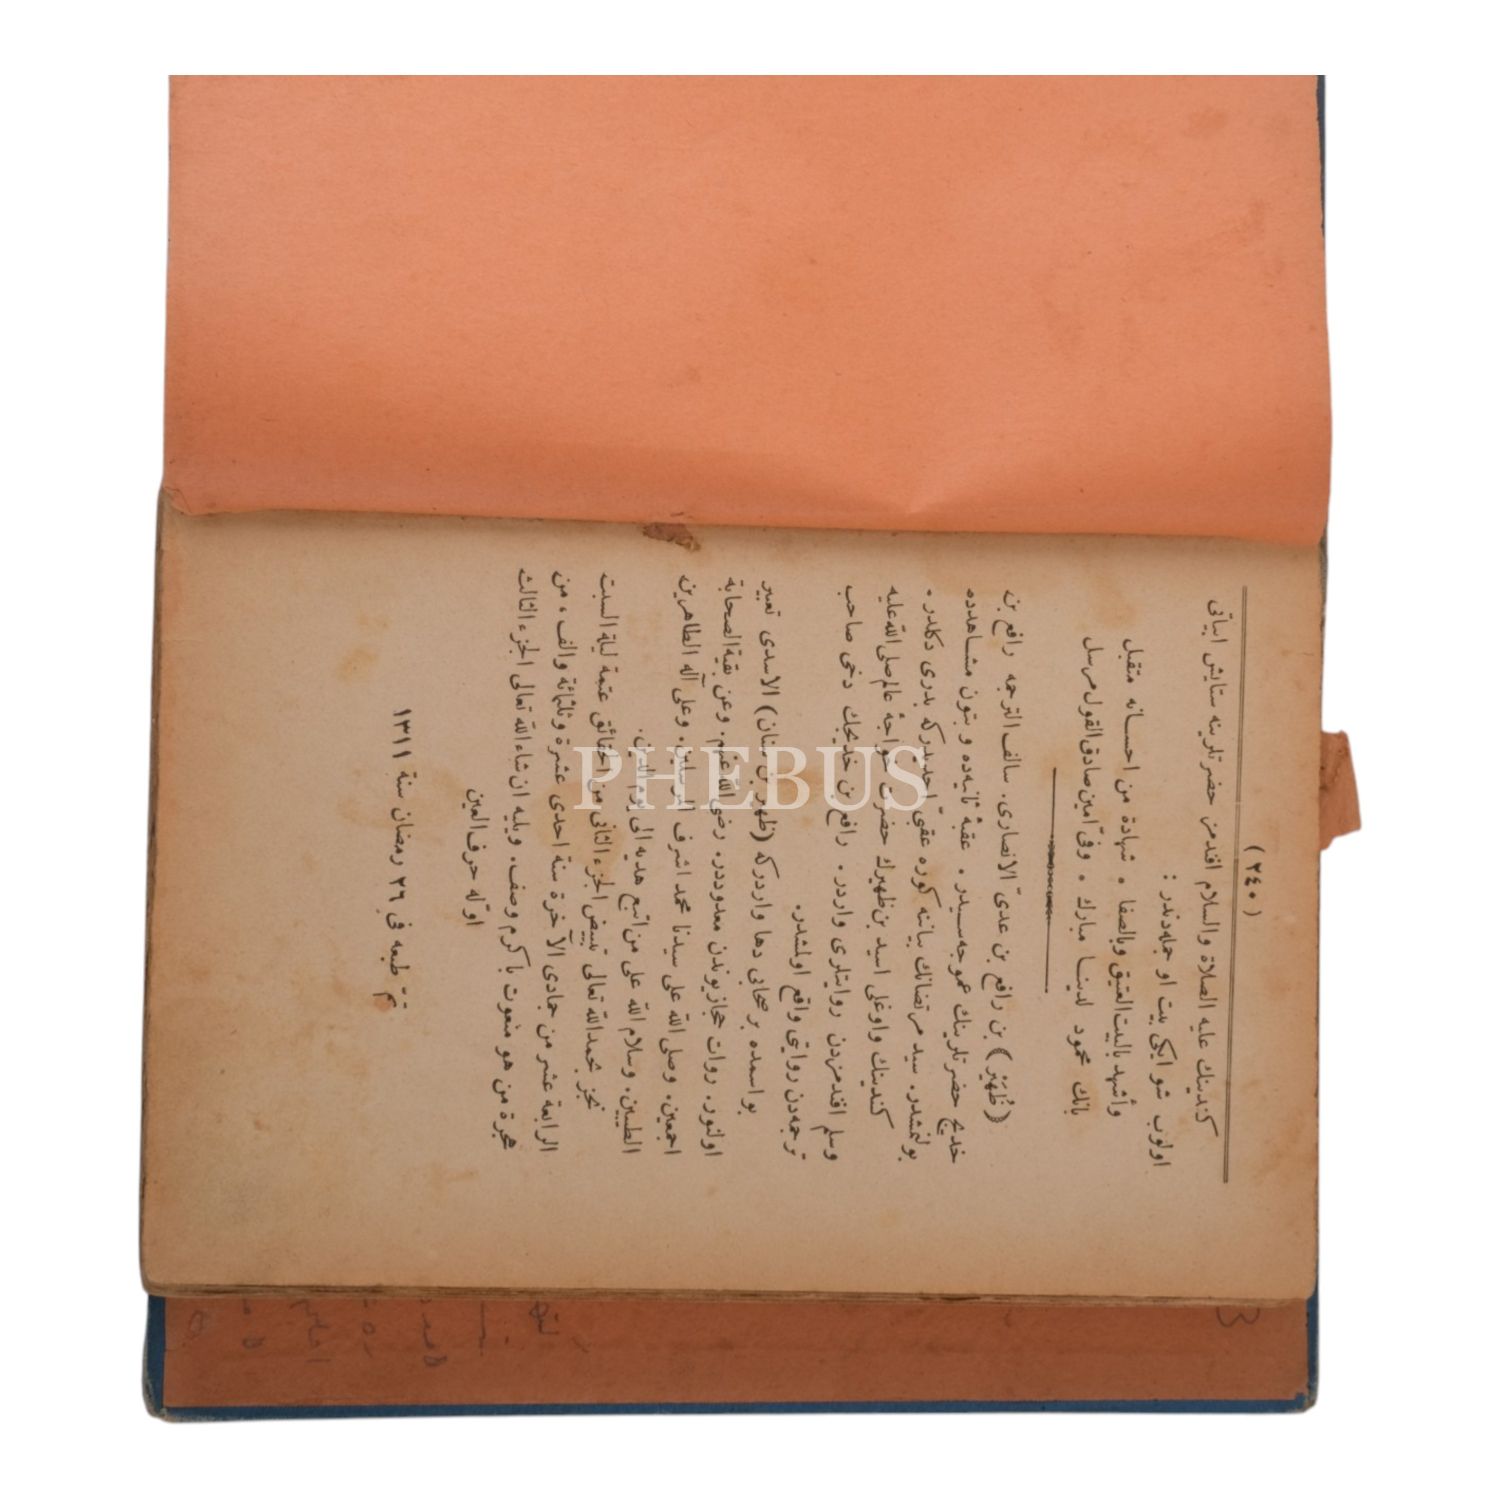 (٢٤٠)
كندينك عليه الصلاة والسلام افندمز حضرتلرينه ستايش ابياتى
اولوب شو ايكى بيت او جمله‌دندر :
وأشهد بالبيت العتيق وبالصفا ٠ شهادة من احسانه متقبل
بانك محمود لدينا مبارك ٠ وفىّ امين صادق القول مرسل
(ظُهَيْر) بن رافع بن عدىّ الانصارى. سالف الترجمه رافع بن
خديج حضرتلرينك عموجه‌سيدر . عقبهٔ ثانيه‌ده و بتون مشاهدده
بولنمشدر. سيد مرتضانك بياننه كوره عقبىّ احديدركه بدرى دكلدر .
كندينك واوغلى اسيد بن ظهيرك حضرت خواجهٔ عالم صلى الله عليه
وسلم افندمزدن روايتلرى واردر . رافع بن خديجك دخى صاحب
ترجمه‌دن روايتى واقع اولمشدر.
بو اسمده بر صحابى دها واردركه (ظهير بن سنان) الاسدى تعبير
اولنور. روات حجازيوندن معدوددر. رضى الله عنهم. وعن بقية الصحابة
اجمعين. وصلى الله على سيدنا محمد اشرف المرسلين. وعلى آله الطاهرين
الطيبين. وسلام الله على من اتبع هديه الى يوم الدين.
نجز بحمدالله تعالى تبييض الجزء الثانى من الحقائق عتمة ليلة السبت
الرابعة عشر من جمادى الآخرة سنة احدى عشرة وثلثمائة والف ، من
هجرة من هو منعوت باكرم وصف. ويليه ان شاءالله تعالى الجزء الثالث
اوّله حرف العين
تمّ طبعه فى ٢٦ رمضان سنة ١٣١١
PHEBUS